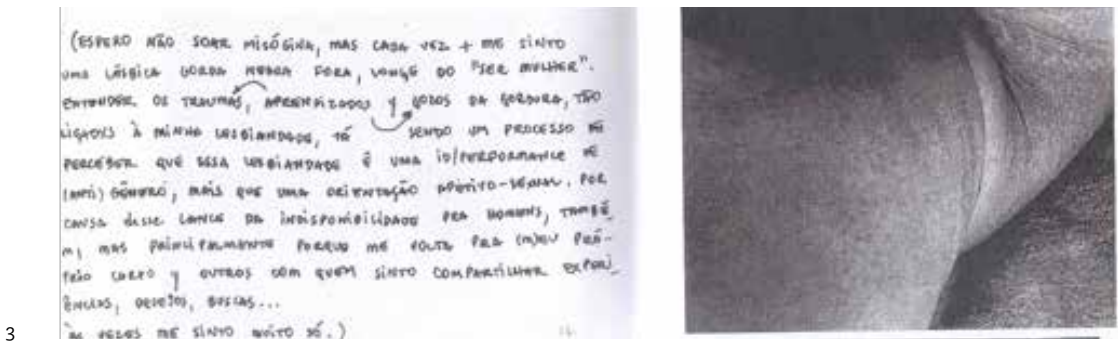 (ESPERO NÃO SOAR MISÓGINA, MAS CADA VEZ + ME SINTO
UMA LÉSBICA GORDA NEGRA FORA, LONGE DO "SER MULHER".
ENTENDER OS TRAUMAS, APRENDIZADOS Y GOZOS DA GORDURA, TÃO
LIGADXS À MINHA LESBIANDADE, TÁ SENDO UM PROCESSO DE
PERCEBER QUE ESSA LESBIANDADE É UMA ID/PERFORMANCE DE
(ANTI) GÊNERO, MAIS QUE UMA ORIENTAÇÃO AFETIVO-SEXUAL. POR
CAUSA DESSE LANCE DA INDISPONIBILIDADE PRA HOMENS, TAMBÉ
M, MAS PRINCIPALMENTE PORQUE ME VOLTA PRA (M)EU PRÓ-
PRIO CORPO Y OUTROS COM QUEM SINTO COMPARTILHAR EXPERI
ÊNCIAS, DESEJOS, BUSCAS...
ÀS VEZES ME SINTO MUITO SÓ.)
3